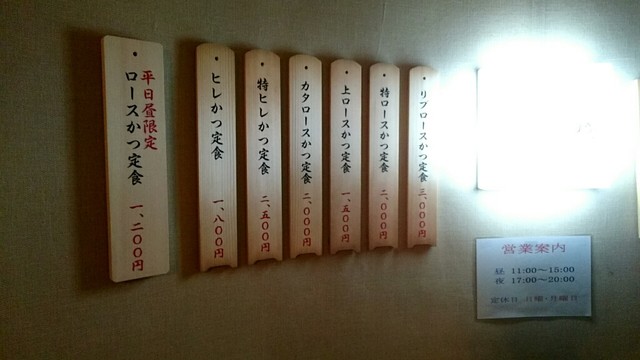 平日昼限定
ロースかつ定食 一、二００円
ヒレかつ定食 一、八００円
特ヒレかつ定食 二、五００円
カタロースかつ定食 二、０００円
上ロースかつ定食 一、五００円
特ロースかつ定食 二、０００円
リブロースかつ定食 三、０００円
営業案内
昼 11:00～15:00
夜 17:00～20:00
定休日 日曜・月曜日